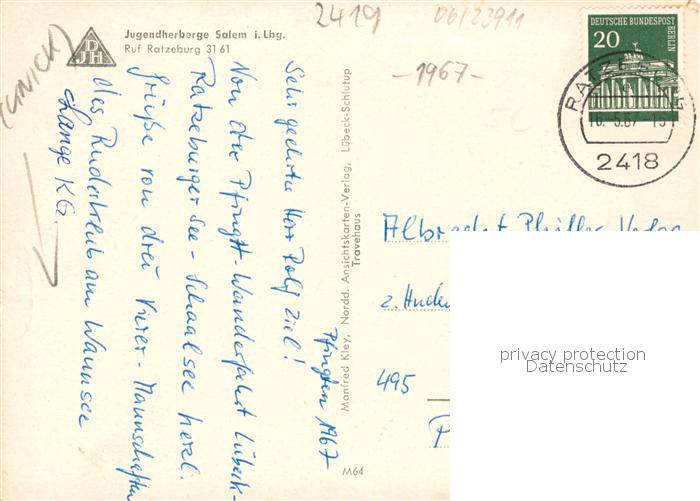 2419
06123911
-1967-
Jugendherberge Salem i. Lbg.
Ruf Ratzeburg 31 61
DJH
DEUTSCHE BUNDESPOST
BERLIN
20
RATZEBURG
16.5.67-15
2418
Pfingsten 1967
Sehr geehrter Herr Rolf Ziel!
Von der Pfingst-Wanderfahrt Lübeck-
Ratzeburger See-Schaalsee herzl.
Grüße von drei Vierer-Mannschaften
des Ruderklub am Wannsee
Lange KG.
Manfred Kley, Nordd. Ansichtskarten-Verlag, Lübeck-Schlutup
Travehaus
M64
Albrecht Philler Verlag
z. Huden
495
privacy protection
Datenschutz